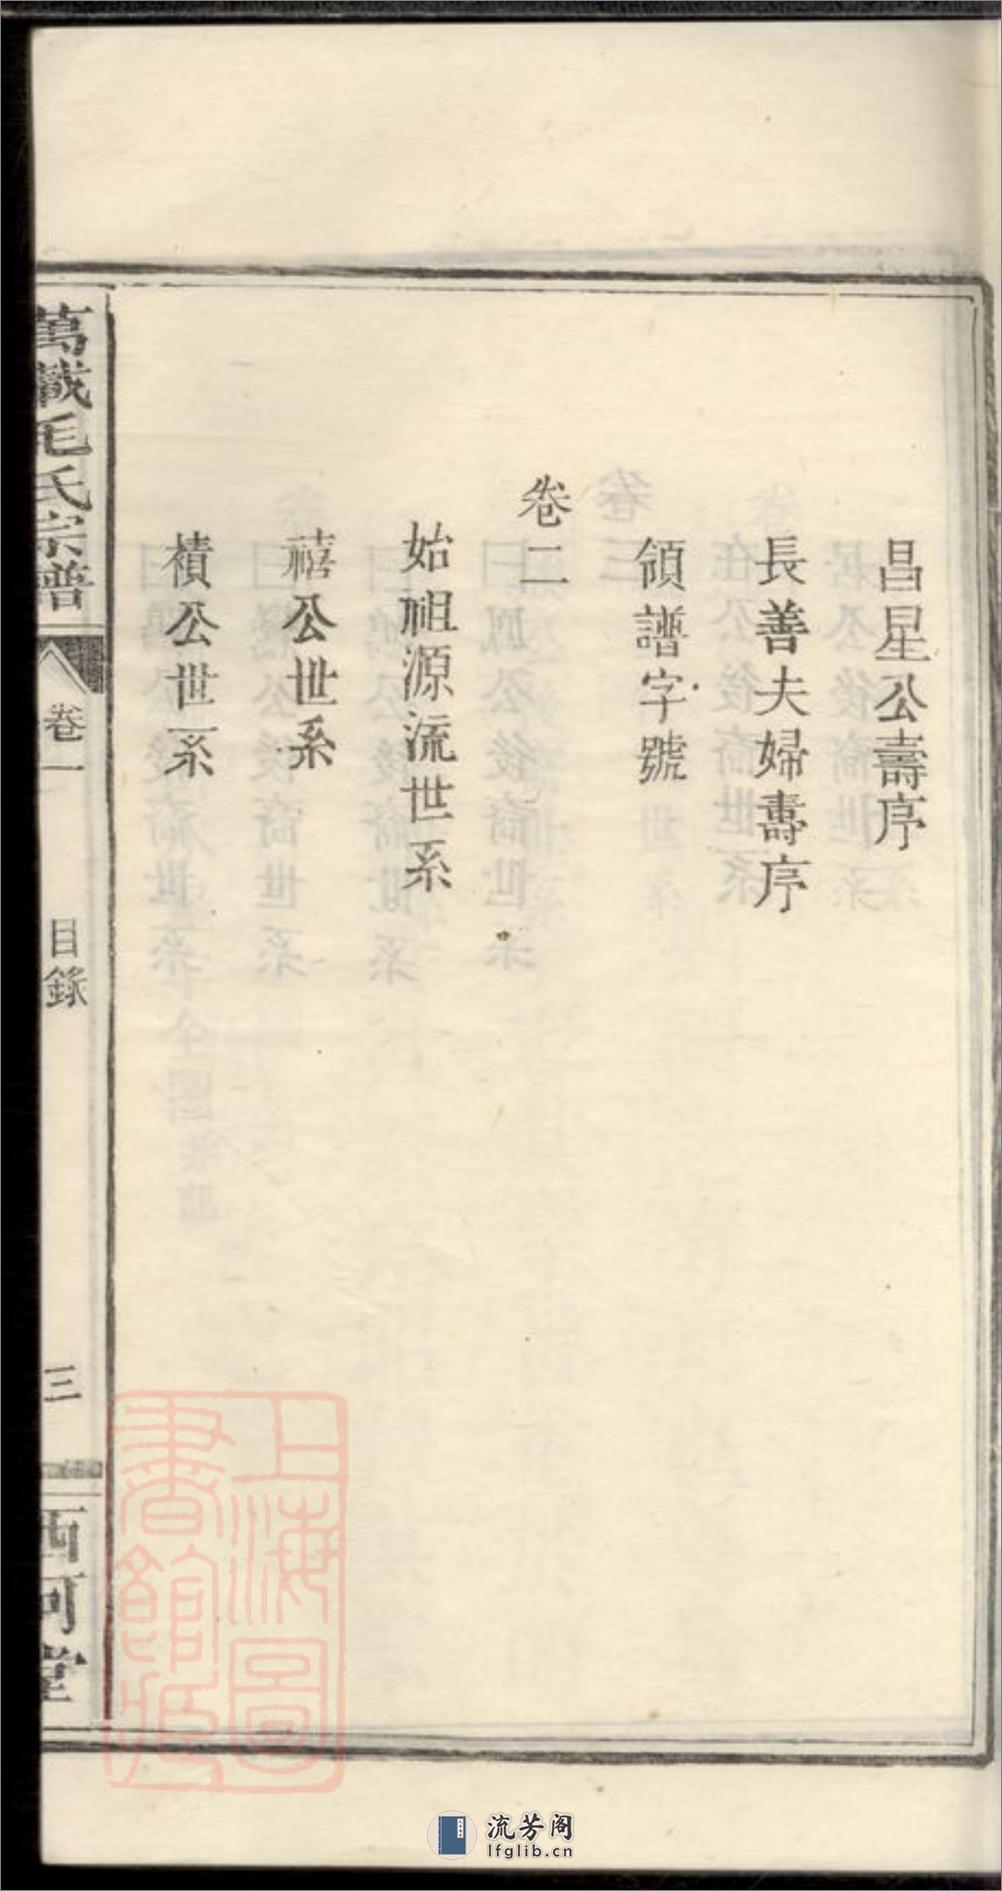 昌星公壽序
長善夫婦壽序
領譜字號
卷二
始祖源流世系
禧公世系
積公世系
萬載毛氏宗譜
卷一
目錄
三
西河堂
上海圖
書館藏
流芳阁
lfglib.cn